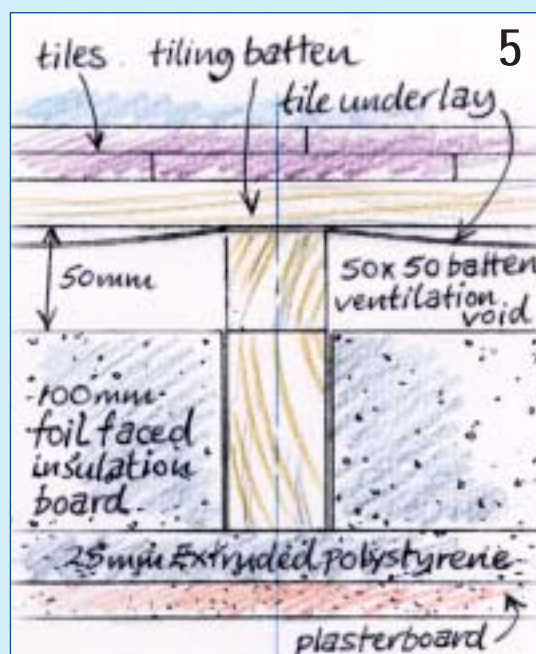 5
tiles tiling batten
tile underlay
50mm
50x50 batten
ventilation
void
100mm
foil faced
insulation
board
25mm Extruded polystyrene
plasterboard